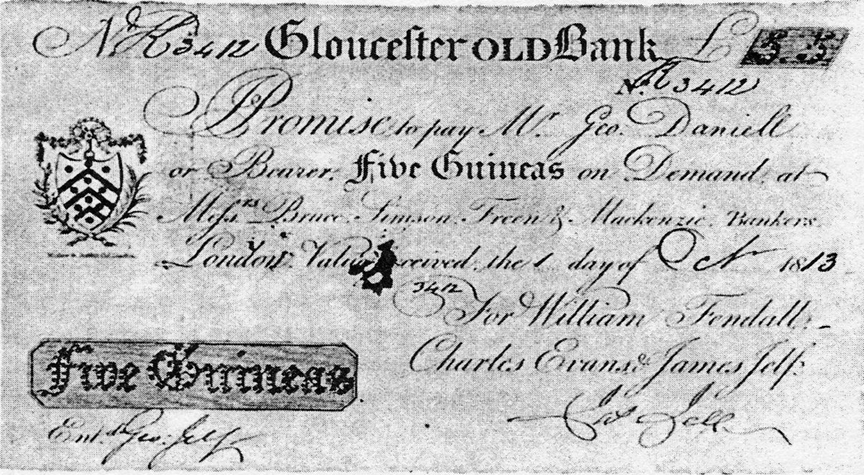 No K3412 Gloucester OLD Bank £ 5.5
No. K3412
Promise to pay Mr. Geo. Daniell
or Bearer, Five Guineas on Demand, at
Messrs. Bruce, Simson, Freer & Mackenzie, Bankers
London, Value received, the 1 day of Oct 1813
3412
For William Fendall,
Charles Evans & James Jelf.
Jas Jelf
Five Guineas
Entd. Geo. Jelf